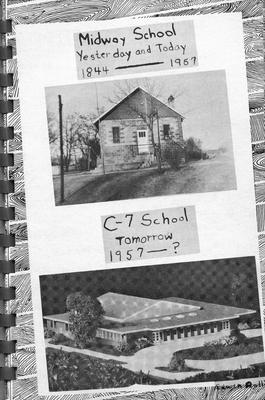 Midway School
Yesterday and Today
1844 — 1957
C-7 School
Tomorrow
1957 — ?